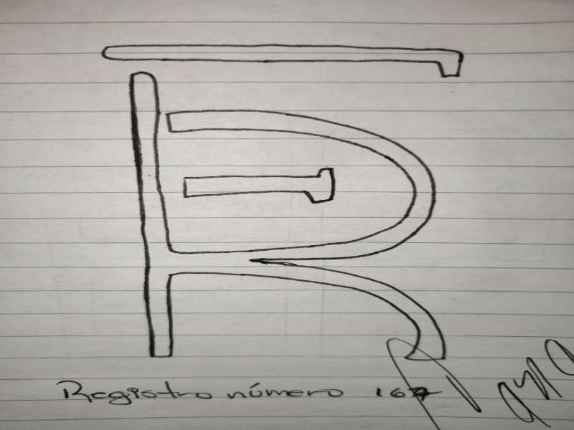 Registro número 167